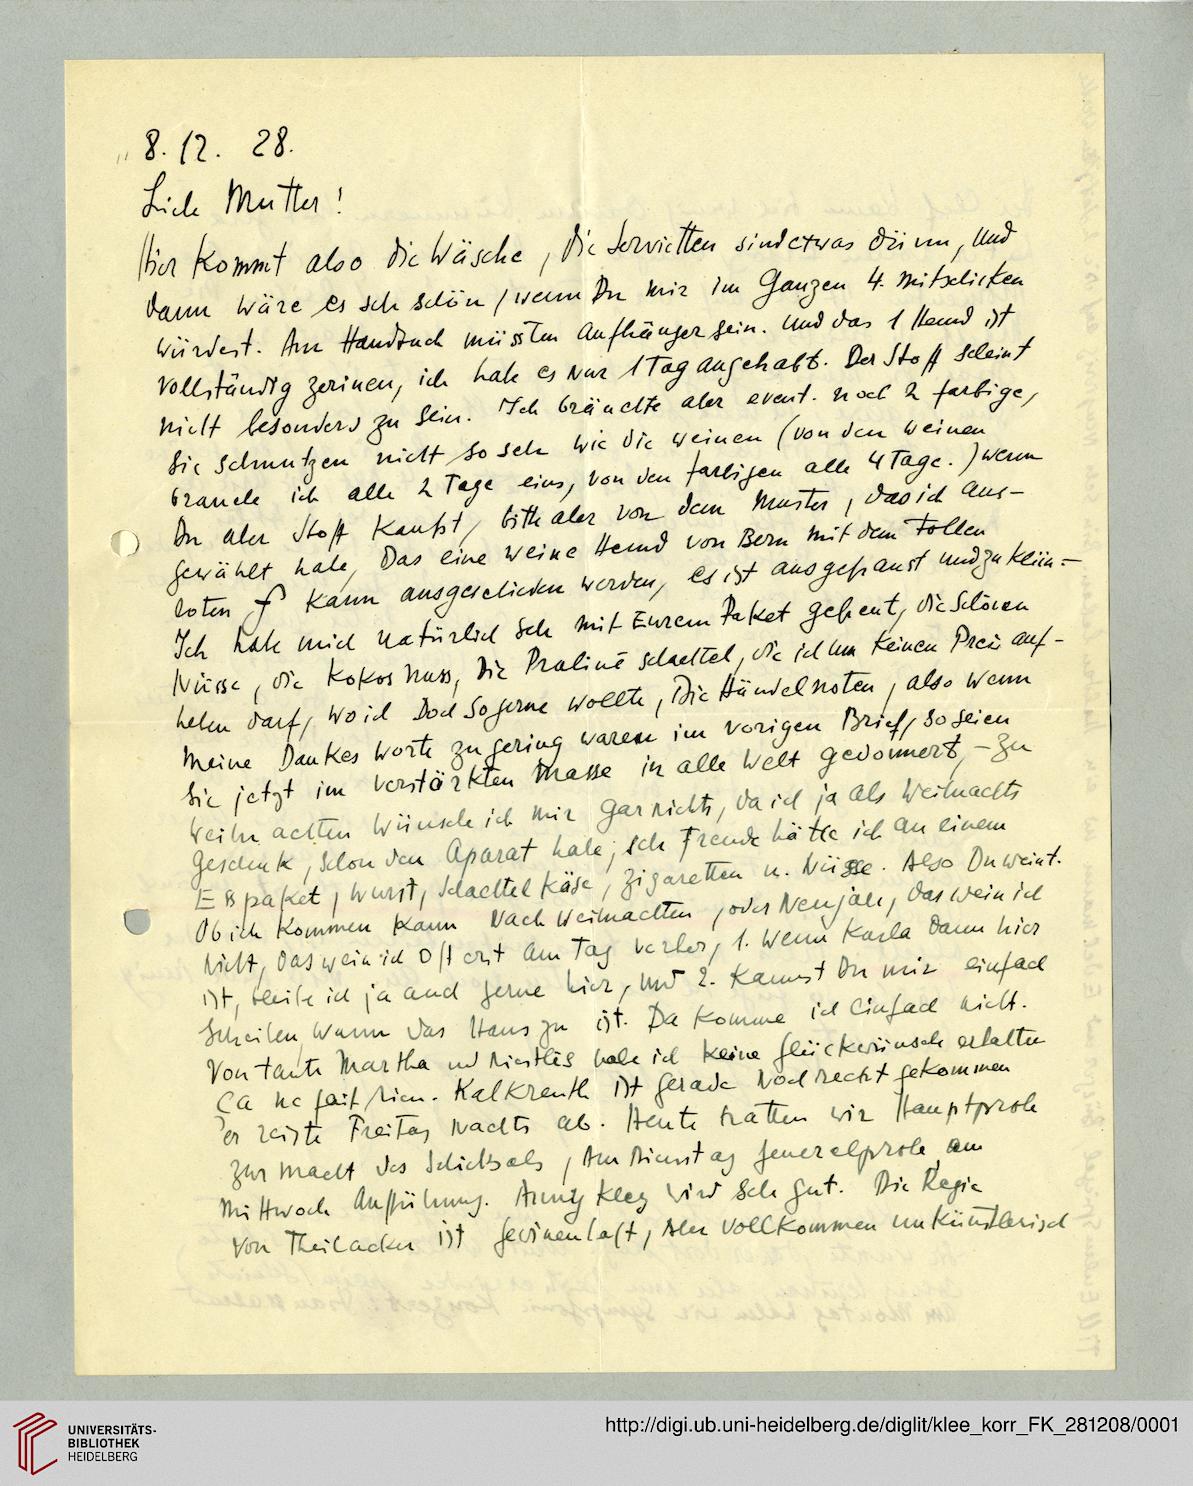 8. 12. 28.
Liebe Mutter!
Hier kommt also die Wäsche, die Servietten sind etwas dünn, und
dann wäre es seh schön, wenn Du mir im Ganzen 4. mitschicken
würdest. Am Handtuch müssten Aufhänger sein. Und das 1 Hemd ist
vollständig zerissen, ich habe es nur 1 Tag angehabt. Der Stoff scheint
nicht besonders zu sein. Ich bräuchte aber event. noch 2 farbige,
sie schmutzen nicht so sehr wie die weissen (von den weissen
brauche ich alle 2 Tage eins, von den farbigen alle 4 Tage.) wenn
Du aber Stoff kaufst, bitte aber von dem Muster, das ich aus-
gewählt habe, Das eine weisse Hemd von Bern mit dem tollen
roten f kann ausgeschieden werden, es ist ausgefranst und zu klein -
Ich habe mich natürlich seh mit Eurem Paket gefreut, die schönen
Nüsse, die Kokosnuss, die Pralinéschachtel, die ich um keinen Preis auf-
heben darf, wo ich doch so gerne wollte, die Händelnoten, also wenn
meine Dankesworte zu gering waren im vorigen Brief, so seien
sie jetzt im verstärkten Masse in alle Welt gedonnert, - Zu
Weihnachten wünsche ich mir gar nichts, da ich ja als Weihnachts
geschenk, schon den Aparat habe, seh Freude hätte ich an einem
Esspaket, Wurst, Schachtelkäse, Zigaretten u. Nüsse. Also Du weinst.
Ob ich kommen kann nach Weihnachten, oder Neujahr, das weiss ich
nicht, das weiss ich oft erst am Tag vorher, 1. Wenn Karla dann hier
ist, bleibe ich ja auch gerne hier, und 2. kannst Du mir einfach
schreiben wann das Haus zu ist. Da komme ich einfach nicht.
Von tante Martha und Niestlés habe ich keine Glückwünsche erhalten
ça ne fait rien. Kalkreuth ist gerade noch recht gekommen
er reiste Freitag Nachts ab. Heute hatten wir Hauptprobe
zur Macht des Schicksals, Am Dienstag Generalprobe, am
Mittwoch Aufführung. Anny Kley wird seh gut. Die Regie
von Theilacker ist gewissenhaft, aber vollkommen unkünstlerisch
UNIVERSITÄTS-
BIBLIOTHEK
HEIDELBERG
http://digi.ub.uni-heidelberg.de/diglit/klee_korr_FK_281208/0001